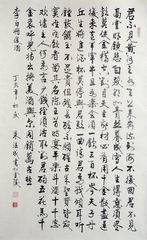 君不見黃河之水天上來奔流到海不復回君不見
高堂明鏡悲白髮朝如青絲暮成雪人生得意須盡
歡莫使金樽空對月天生我材必有用千金散盡還
復來烹羊宰牛且為樂會須一飲三百杯岑夫子丹
丘生將進酒杯莫停與君歌一曲請君為我傾耳聽
鐘鼓饌玉不足貴但願長醉不願醒古來聖賢皆寂
寞惟有飲者留其名陳王昔時宴平樂斗酒十千恣
歡謔主人何為言少錢徑須沽取對君酌五花馬千
金裘呼兒將出換美酒與爾同銷萬古愁
李白將進酒 丁亥年